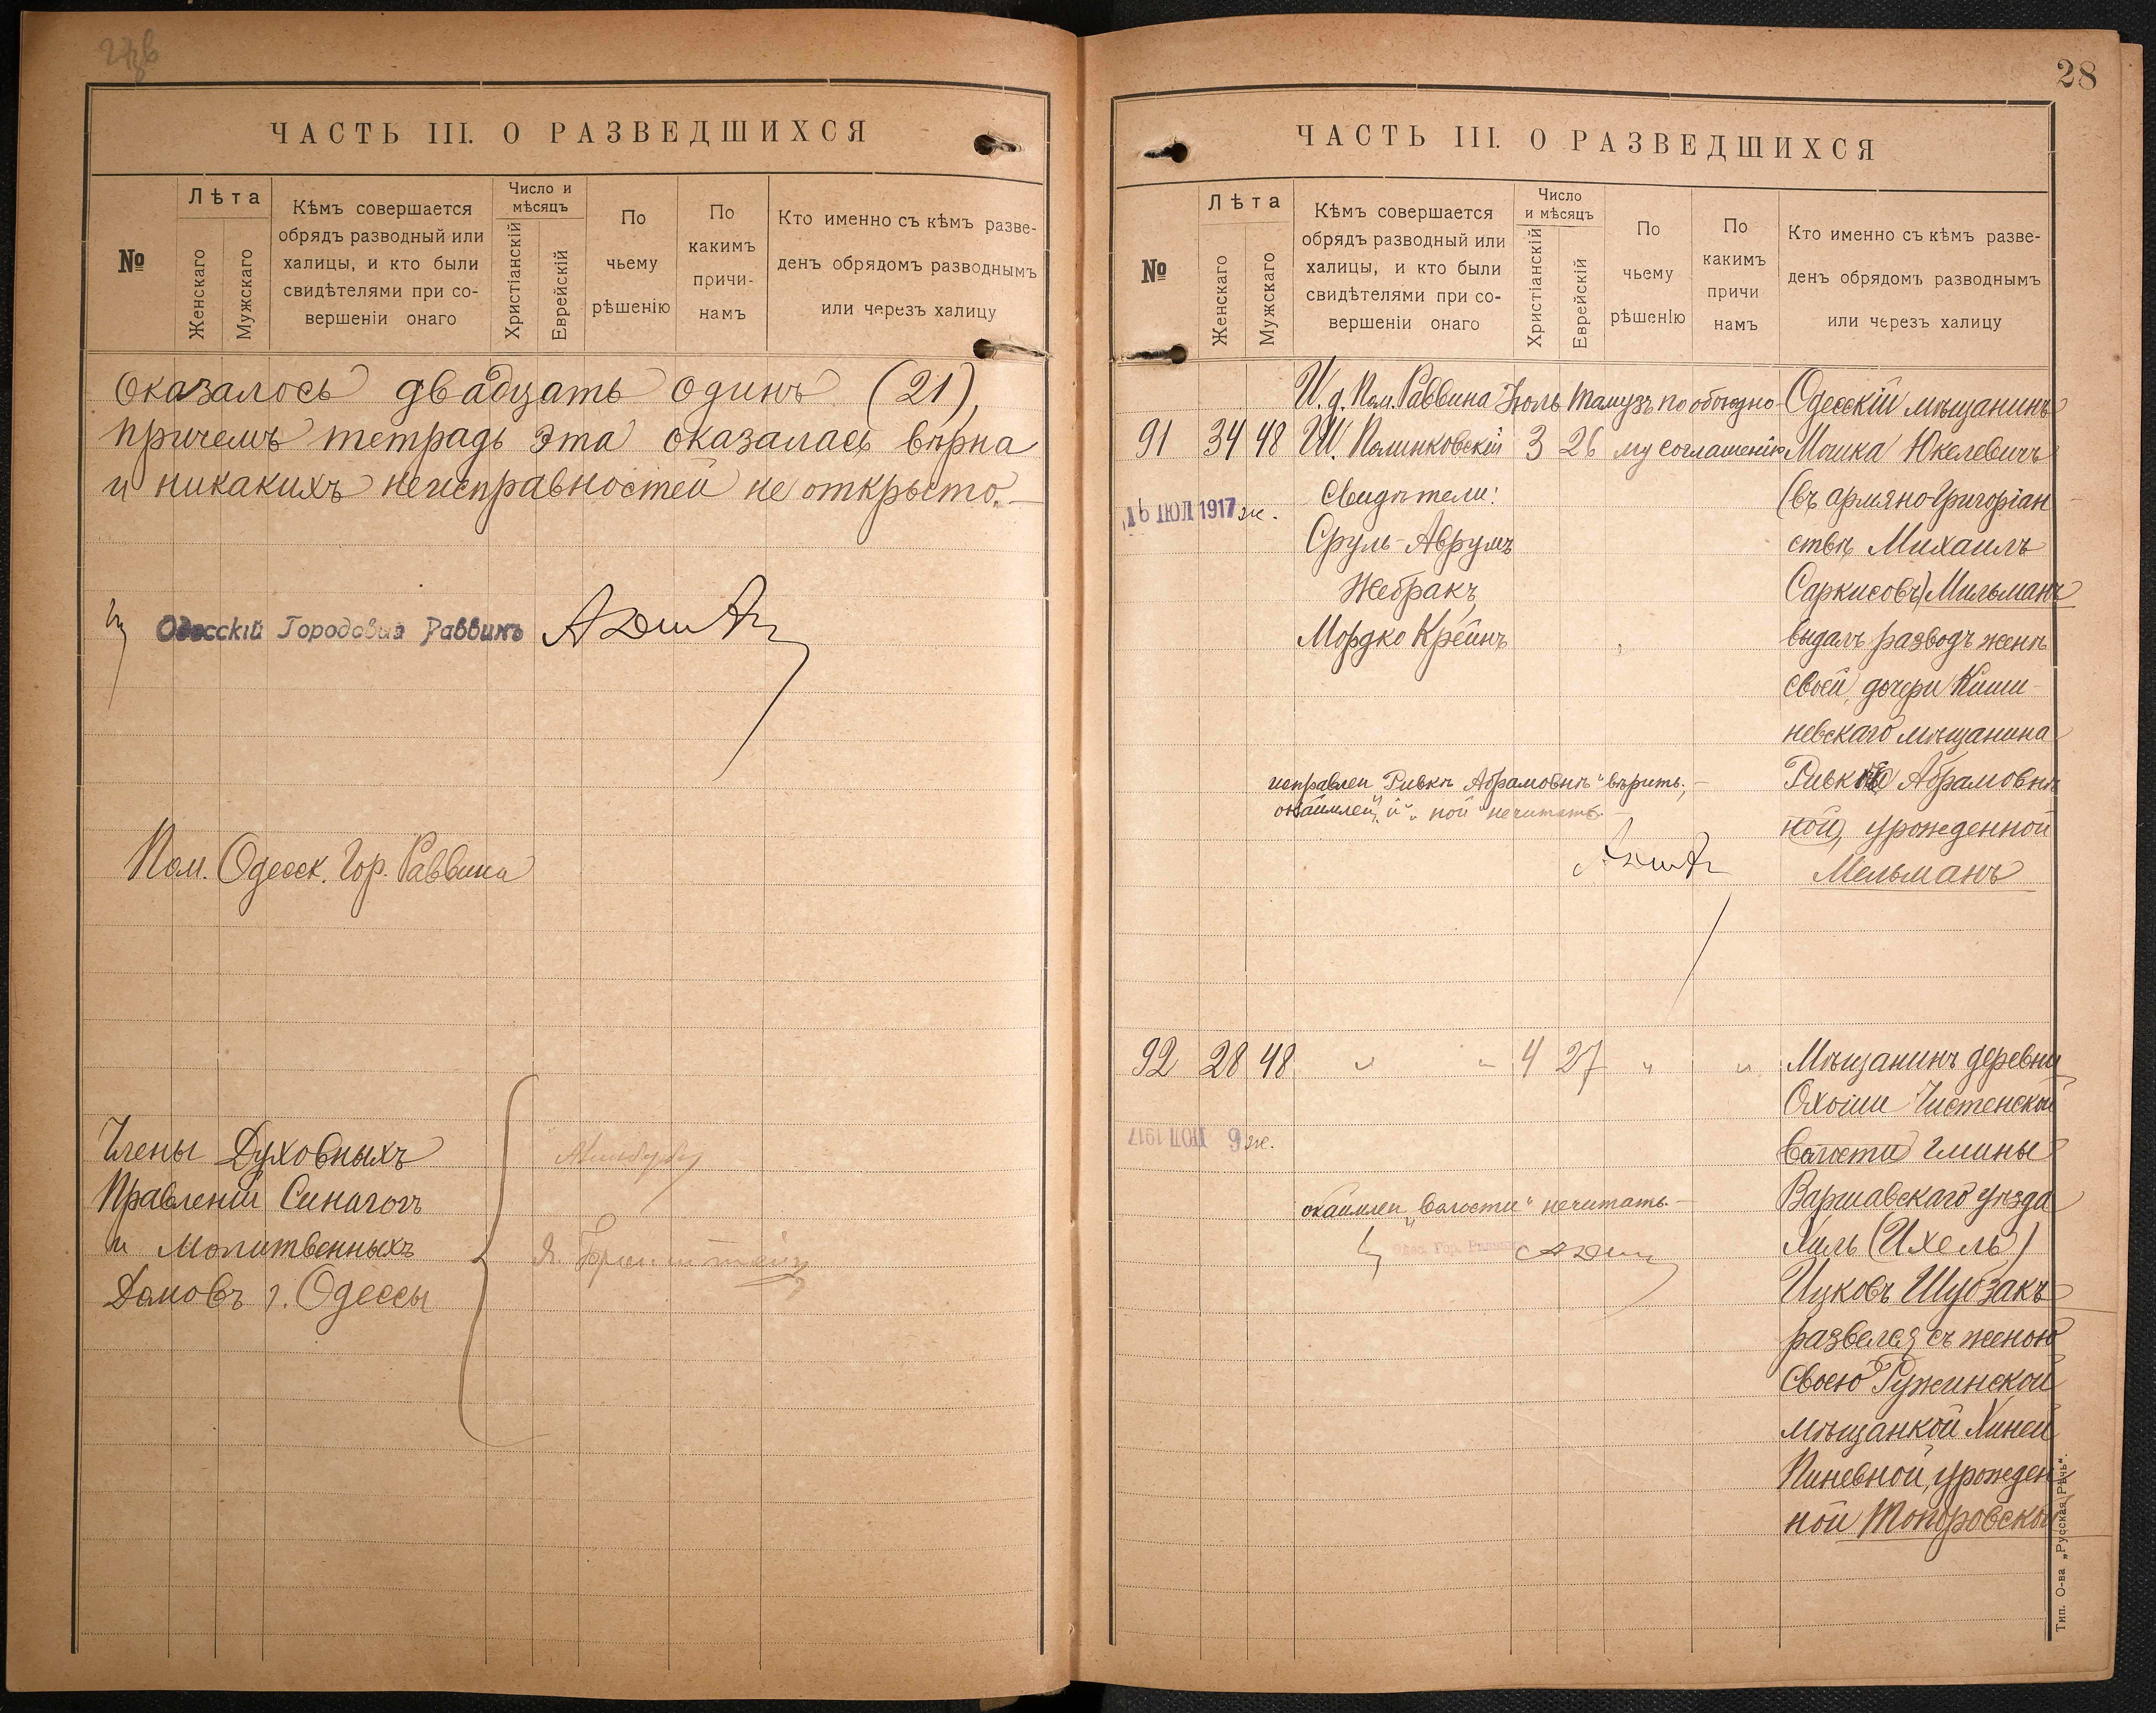 28
ЧАСТЬ III. О РАЗВЕДШИХСЯ
№
Лѣта
Женскаго
Мужскаго
Кѣмъ совершается
обрядъ разводный или
халицы, и кто были
свидѣтелями при со-
вершеніи онаго
Число и
мѣсяцъ
Христіанскій
Еврейскій
По
чьему
рѣшенію
По
какимъ
причи-
намъ
Кто именно съ кѣмъ разве-
денъ обрядомъ разводнымъ
или черезъ халицу
оказалось двадцать одинъ (21),
причемъ тетрадь эта оказалась вѣрна
и никакихъ неисправностей не открыто.—
Одесскій Городовий Раввинъ
Пом. Одесск. Гор. Раввина
Члены Духовныхъ
Правленій Синагогъ
и Молитвенныхъ
Домовъ г. Одессы
ЧАСТЬ III. О РАЗВЕДШИХСЯ
№
Лѣта
Женскаго
Мужскаго
Кѣмъ совершается
обрядъ разводный или
халицы, и кто были
свидѣтелями при со-
вершеніи онаго
Число
и мѣсяцъ
Христіанскій
Еврейскій
По
чьему
рѣшенію
По
какимъ
причи
намъ
Кто именно съ кѣмъ разве-
денъ обрядомъ разводнымъ
или черезъ халицу
И. д. Пом. Раввина Іюль Тамузъ по обоюдно- Одесскій мѣщанинъ
91 34 48 Ш. Полинковскій 3 26 му соглашенію Мошка Юкелевичъ
16 ІЮЛ 1917 Свидѣтели: (въ армяно-григоріан
Сруль-Аврумъ ствѣ Михаилъ
Жебракъ Саркисовъ) Мильманъ
Мордко Крейнъ выдалъ разводъ женѣ
своей, дочери Киши-
невскаго мѣщанина
исправлен. „Ривкѣ Абрамовнѣ" вѣрить; — Ривкѣ Абрамовнѣ
окаймлен „й", „ной" нечитать. — ной, урожденной
Мельманъ
92 28 48 " " 4 27 " " Мѣщанинъ деревни
Чистенской
ІЮЛ 1917 волости гмины
окаймлен „волости" нечитать. — Варшавскаго уѣзда
Одес. Гор. Раввинъ Хиль (Ихель)
Ицковъ Шубзакъ
развелся съ женою
своею Ружинской
мѣщанкой Хиней
Пиневной, урожден
ной Топоровской
Тип. О-ва „Русская Рѣчь".